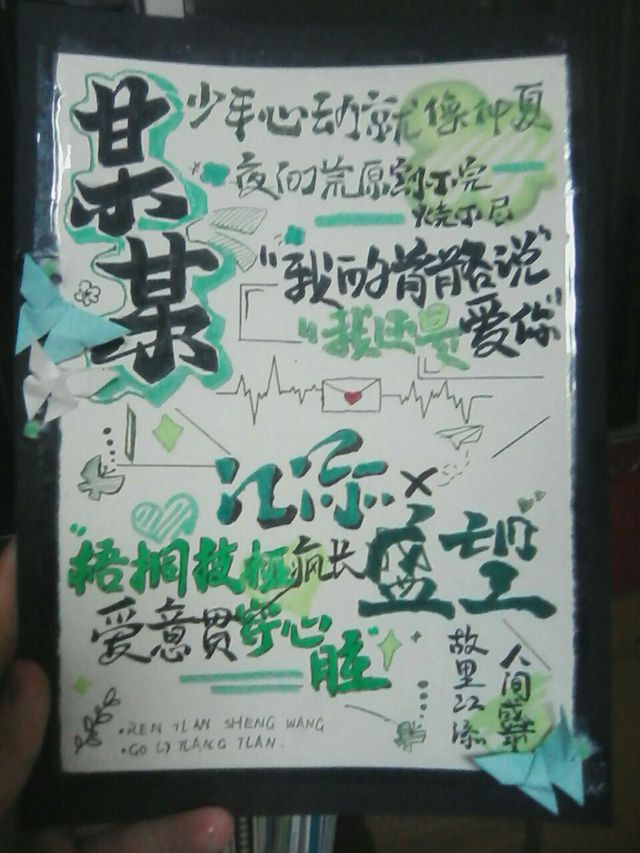 某某
少年心动就像仲夏
夜的荒原割不完
烧不尽
"我的背脊骨说"
"我还是爱你"
江添
×
盛望
"梧桐枝桠疯长
爱意贯穿心脏"
人间盛望
故里江添
·REN JIAN SHENG WANG
·GO LI JIANG TIAN.